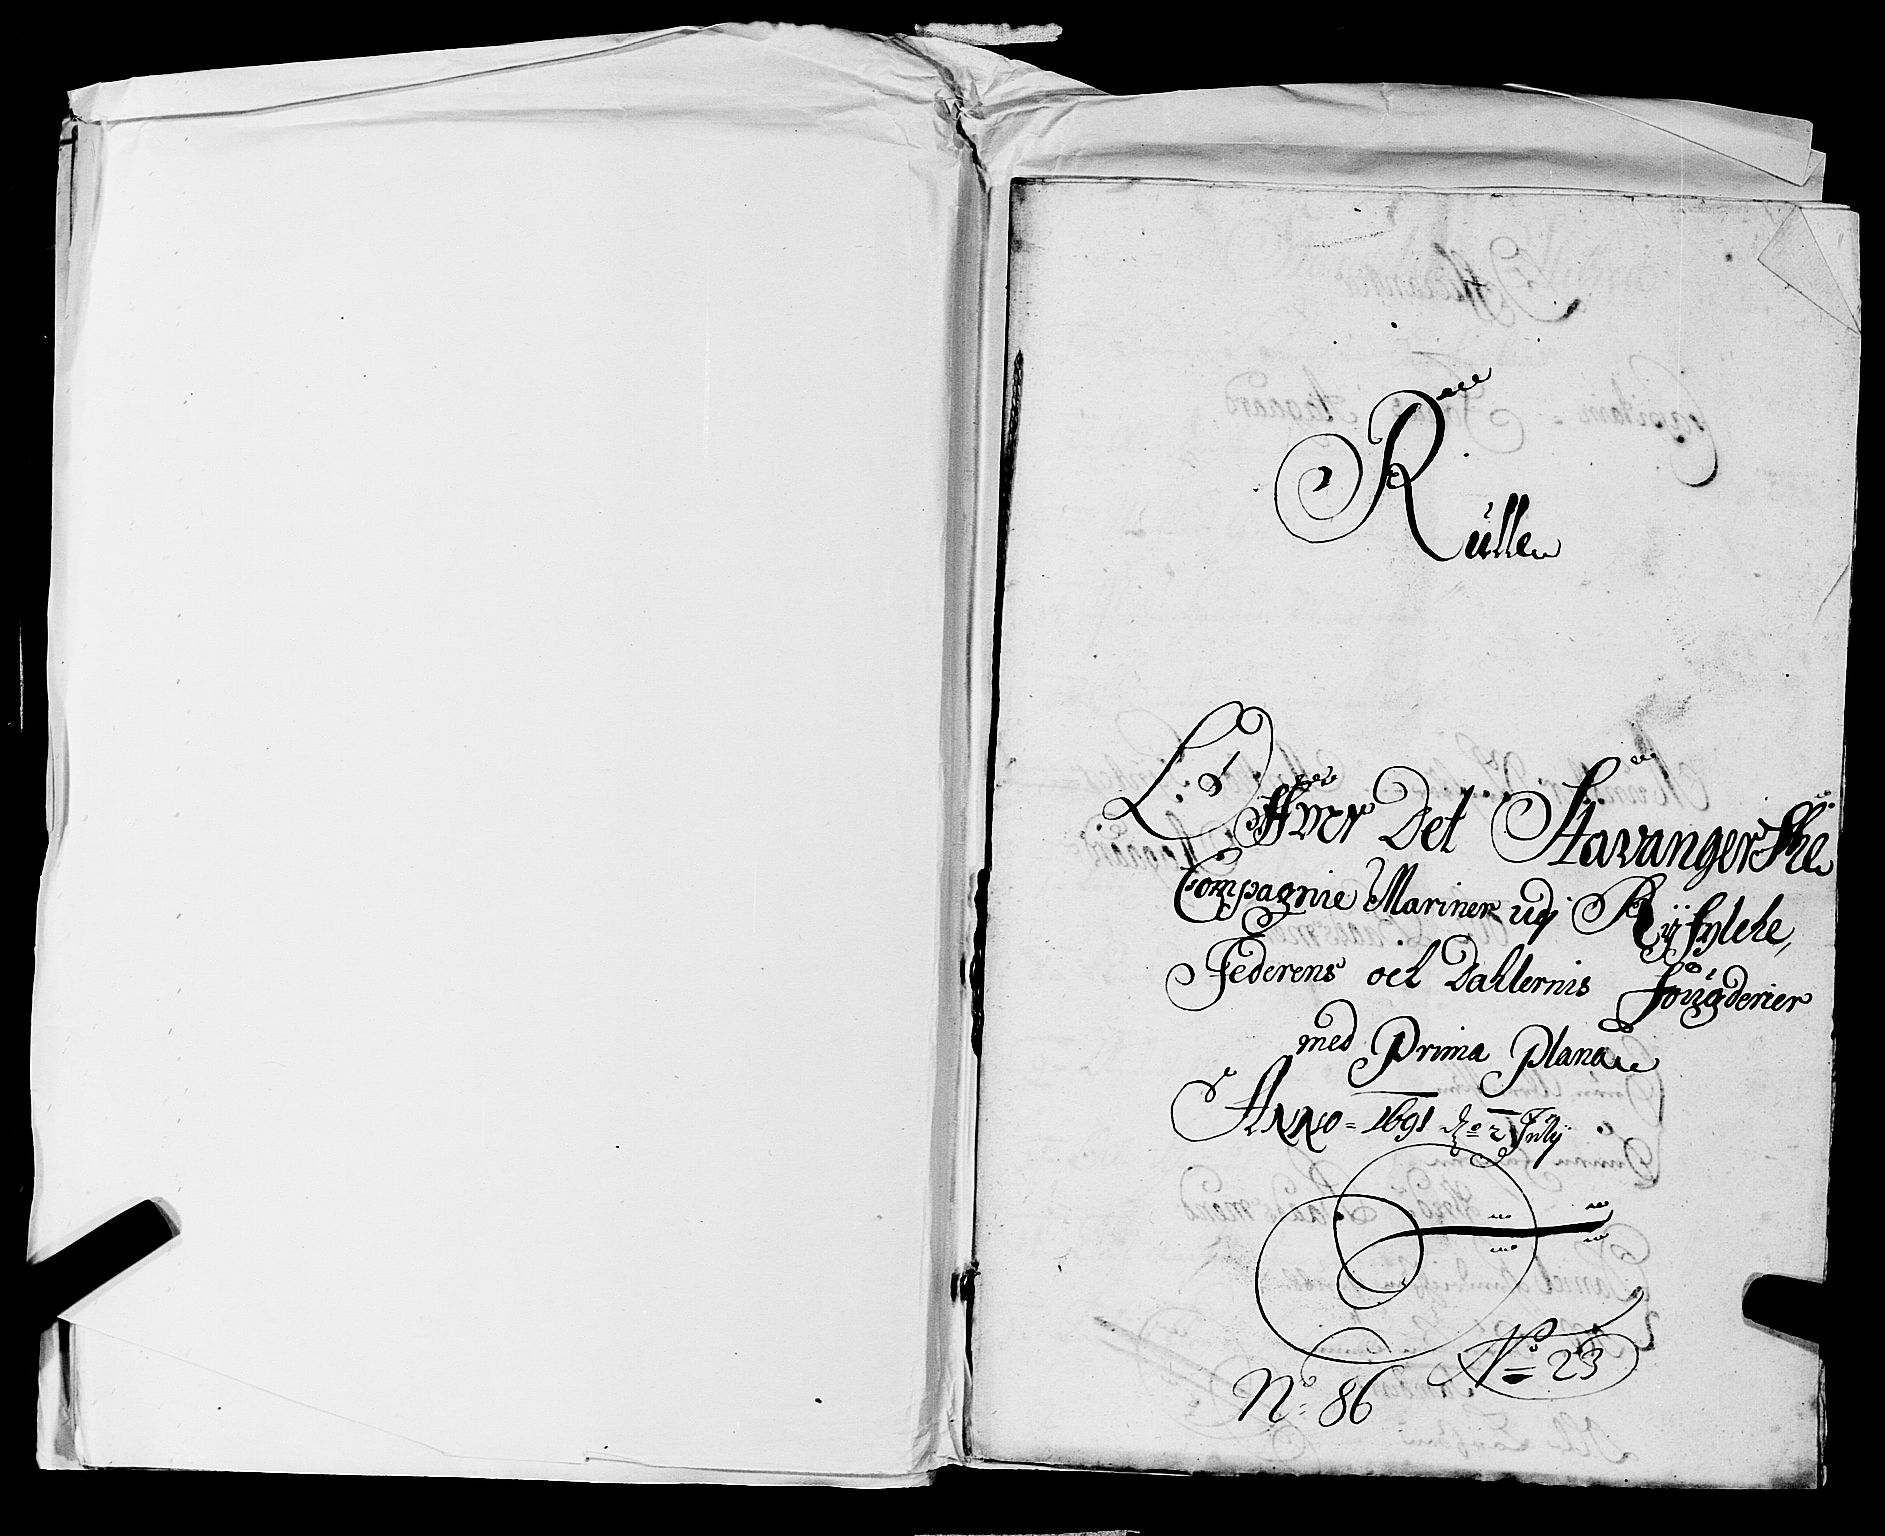 Rúlle
Offver Det Stavangerske
Compagnie Mariner udj Ryfylche,
Jederens och Dahlernis fougderier
med Prima Plana
Anno = 1691 d: 2 Julÿ
No 23
No: 86